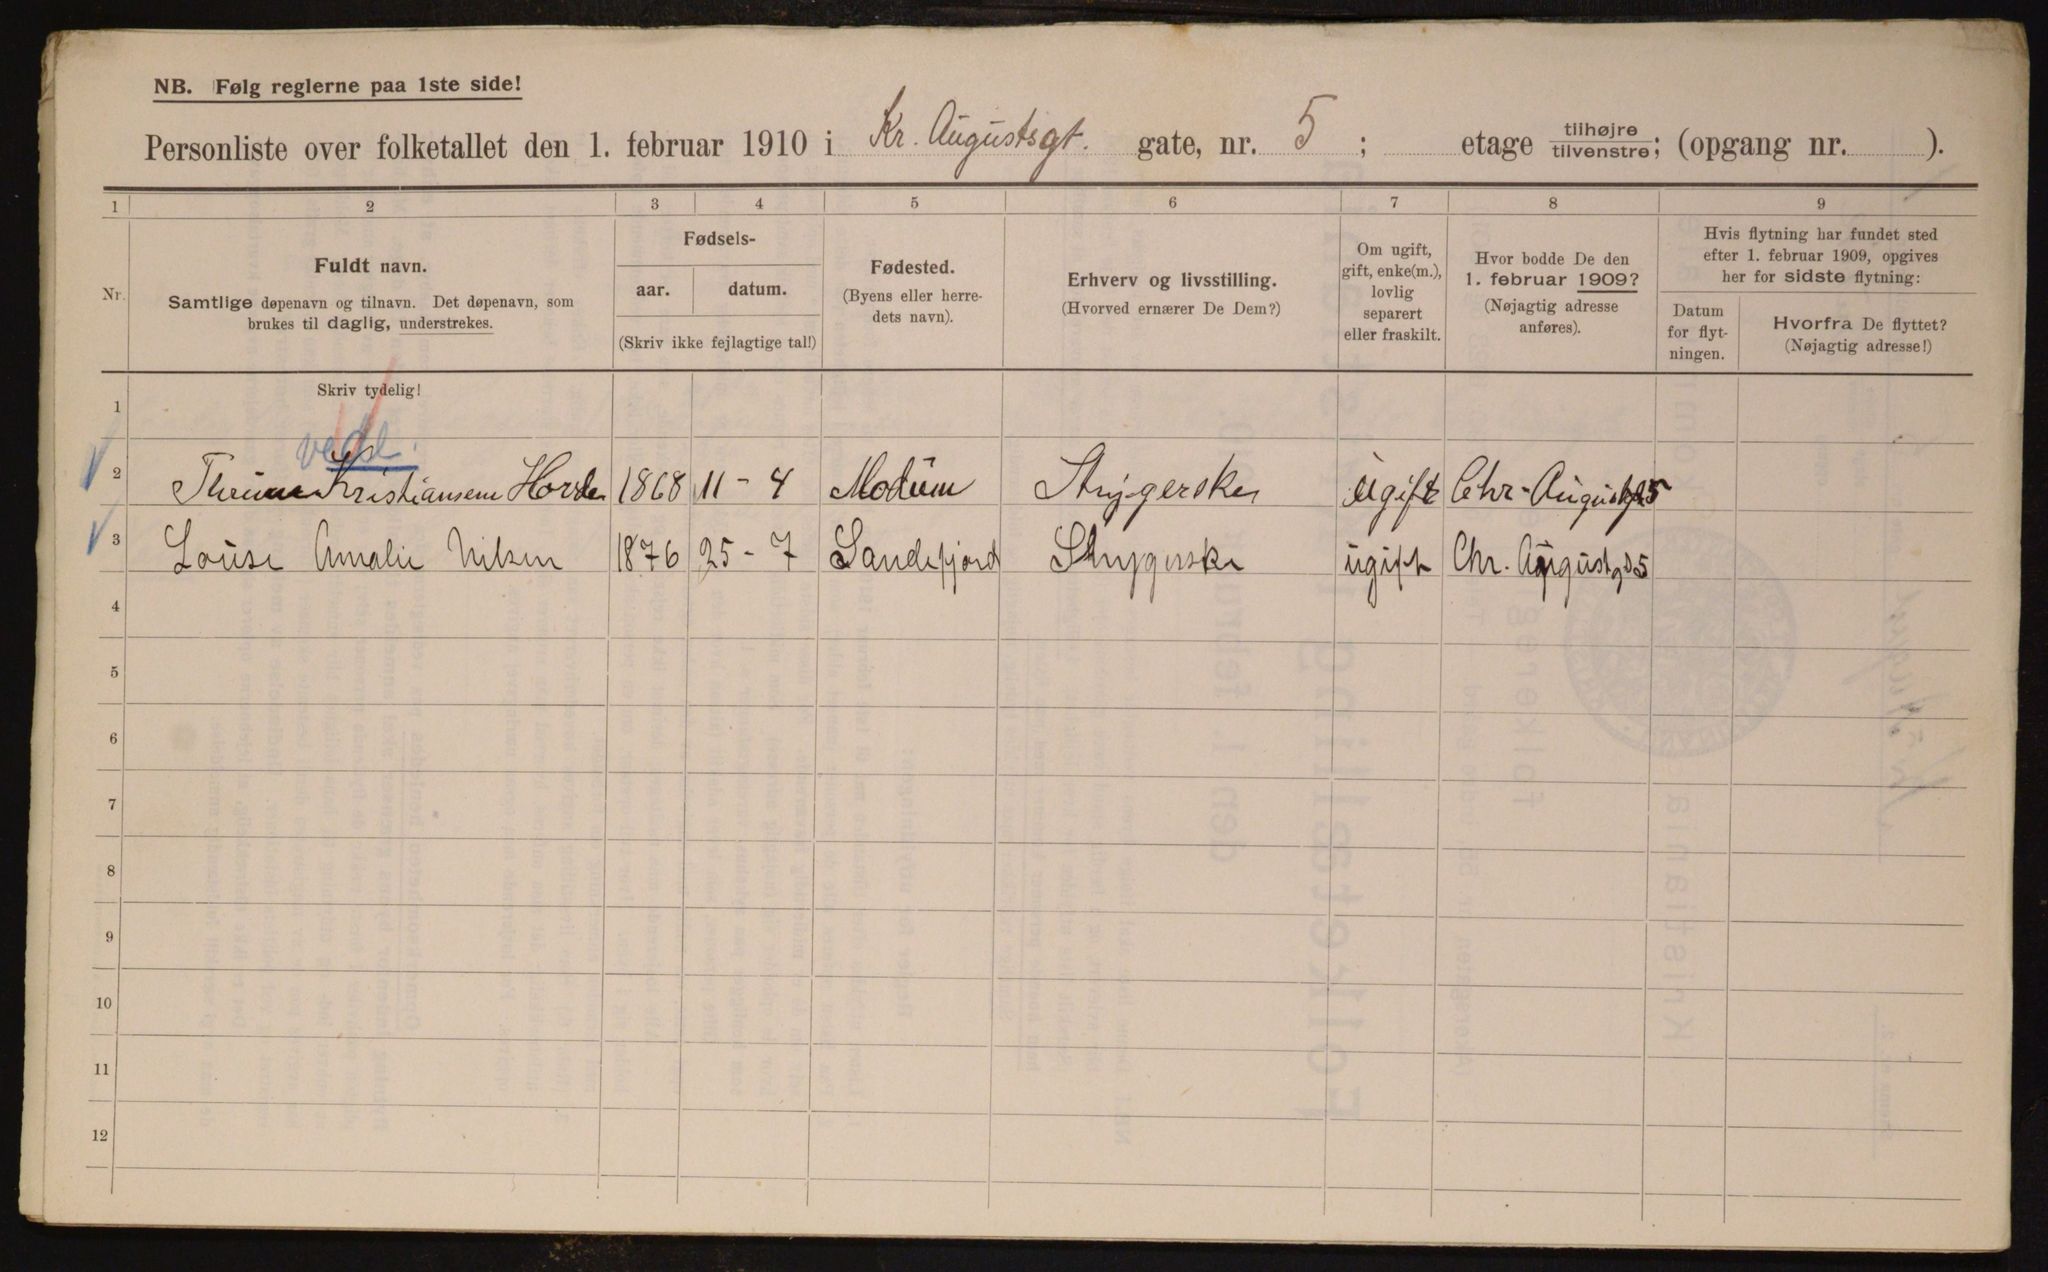 NB. Følg reglerne paa 1ste side!
Personliste over folketallet den 1. februar 1910 i Kr. Augustsgt. gate, nr. 5 ; etage tilhøjre tilvenstre; (opgang nr. ).
1 2 3 4 5 6 7 8 9
Nr.
Fuldt navn.
Samtlige døpenavn og tilnavn. Det døpenavn, som
brukes til daglig, understrekes.
Skriv tydelig!
Fødsels-
aar. datum.
(Skriv ikke fejlagtige tal!)
Fødested.
(Byens eller herre-
dets navn).
Erhverv og livsstilling.
(Hvorved ernærer De Dem?)
Om ugift,
gift, enke(m.),
lovlig
separert
eller fraskilt.
Hvor bodde De den
1. februar 1909?
(Nøjagtig adresse
anføres).
Hvis flytning har fundet sted
efter 1. februar 1909, opgives
her for sidste flytning:
Datum
for flyt-
ningen.
Hvorfra De flyttet?
(Nøjagtig adresse!)
1
2 Kristiansen 1868 11 - 4 Modum Strygerske ugift Chr. Augustsgt 5
3 Louise Amalie Nilsen 1876 25 - 7 Sandefjord Strygerske ugift Chr. Augustgd 5
4
5
6
7
8
9
10
11
12